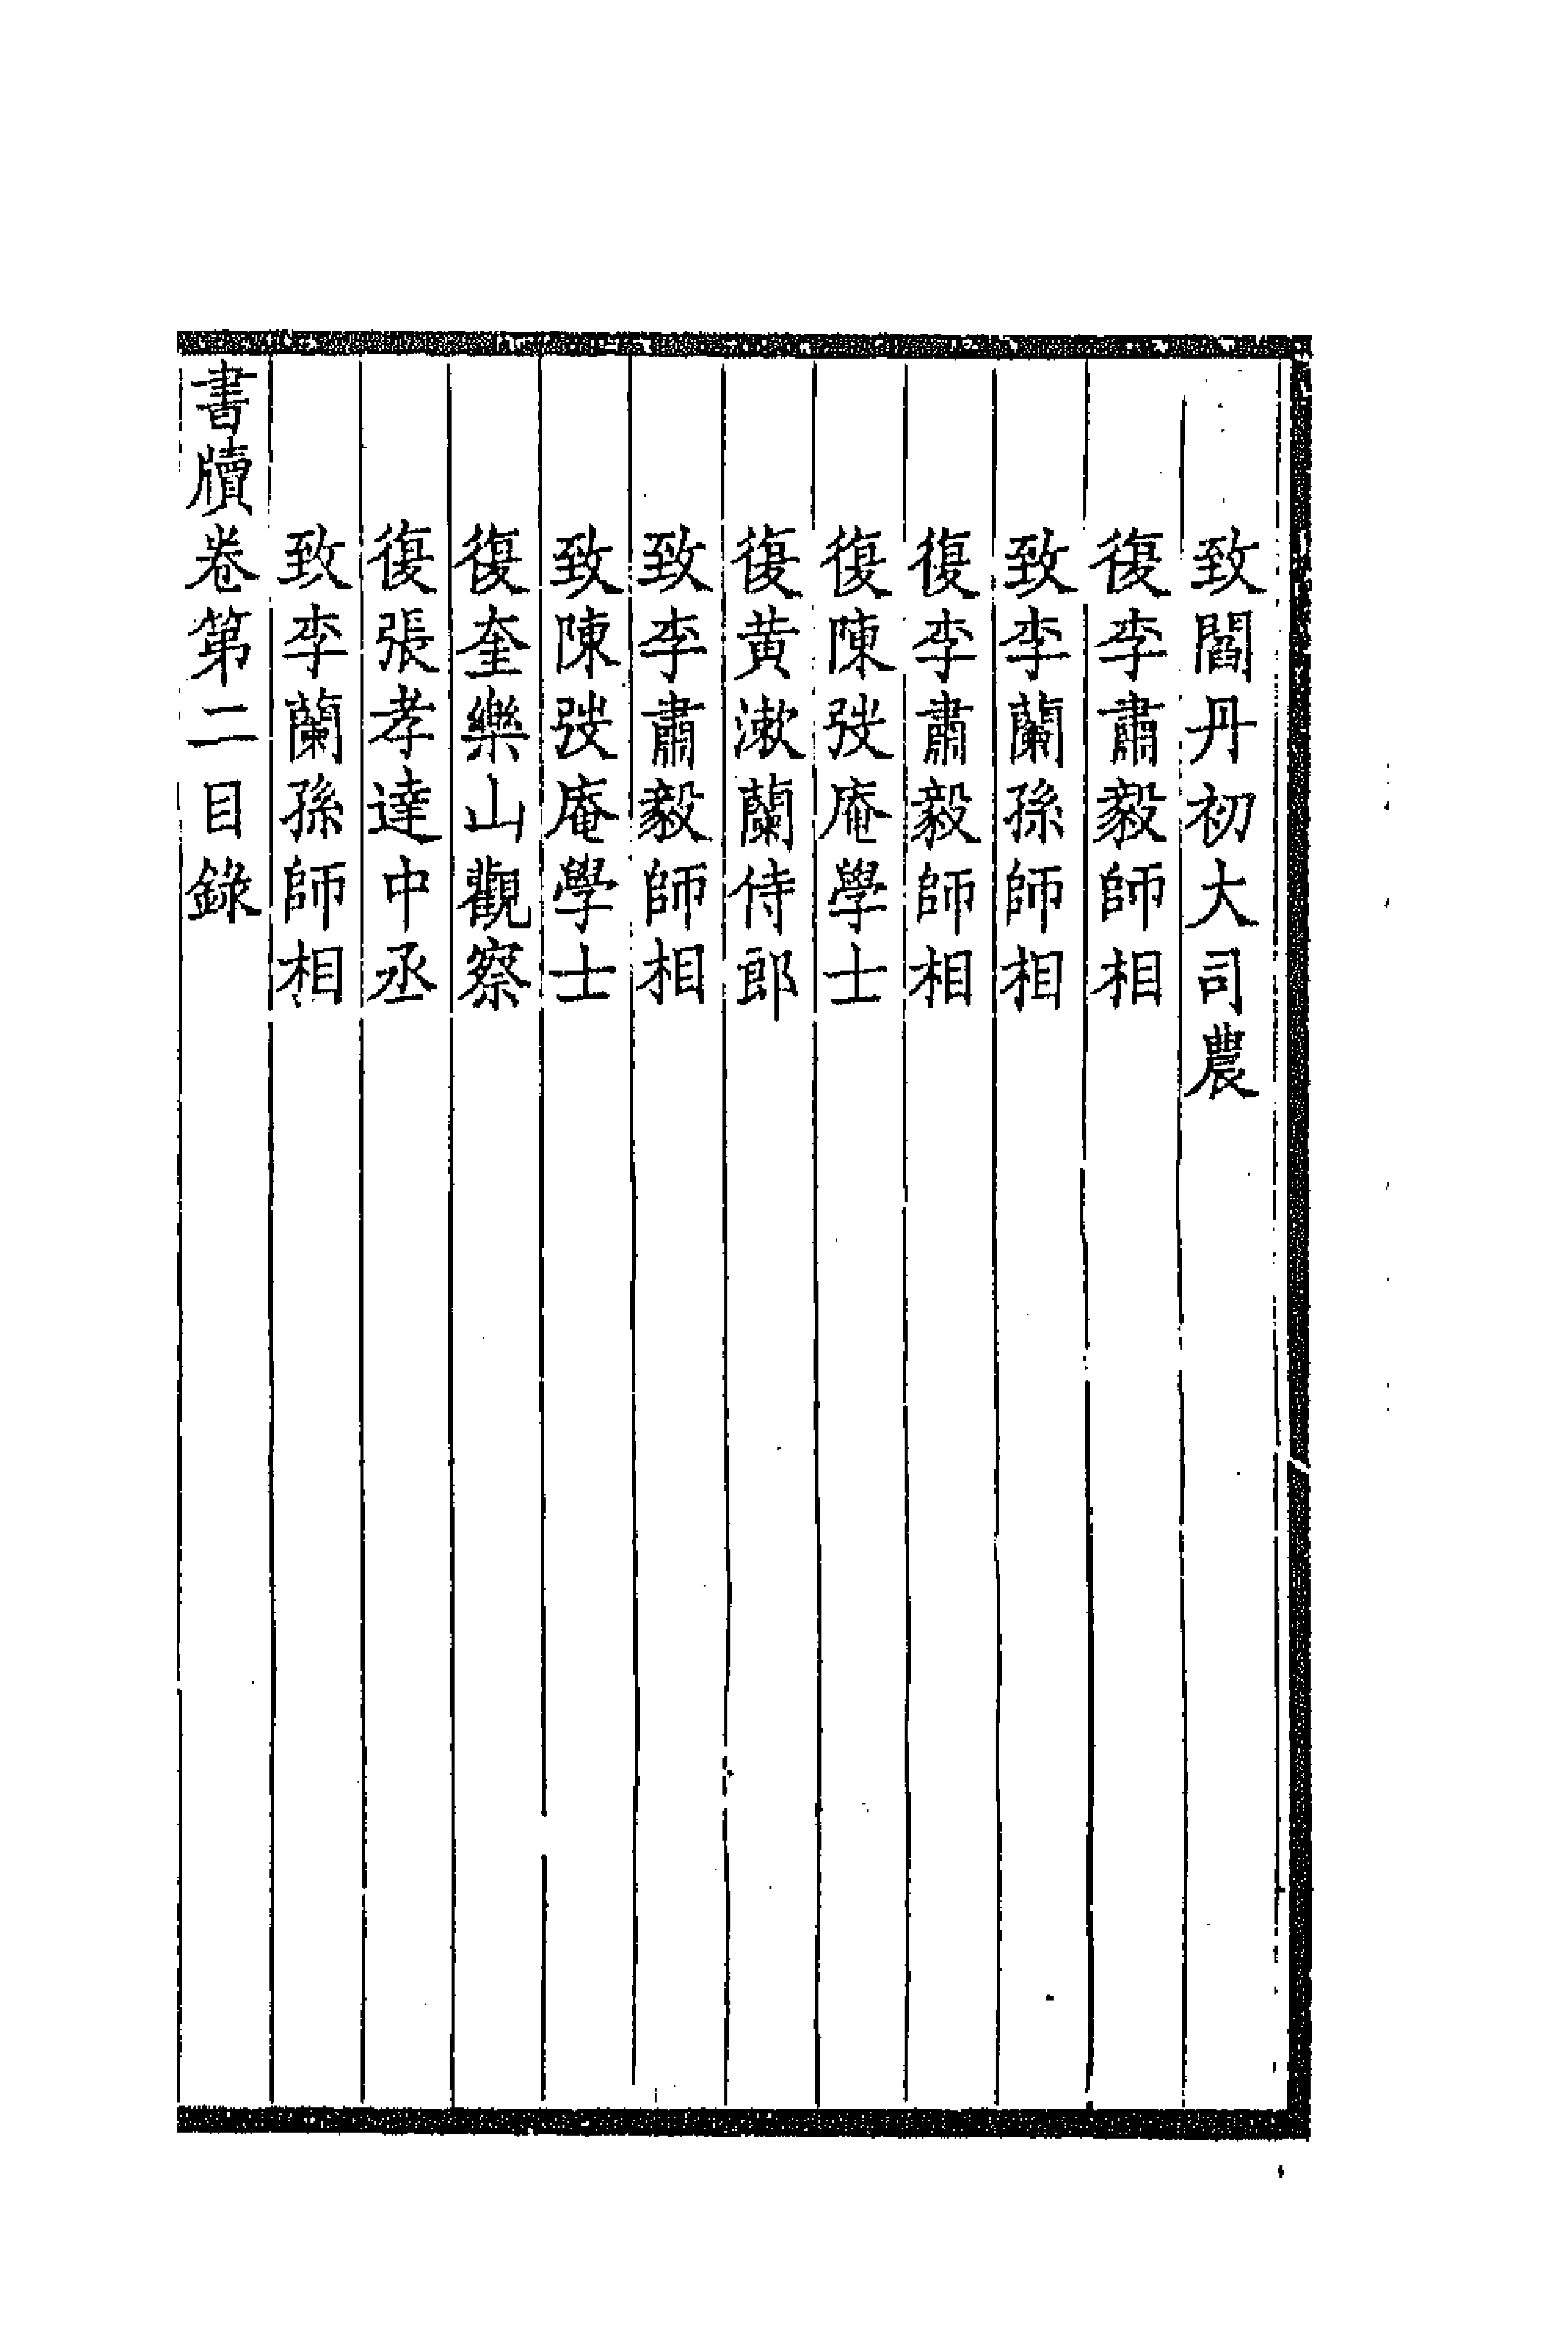 致閻丹初大司農
復李肅毅師相
致李蘭孫師相
復李肅毅師相
復陳弢庵學士
復黄漱蘭侍郎
致李肅毅師相
致陳弢庵學士
復奎樂山觀察
復張孝達中丞
致李蘭孫師相
書牘卷第二目錄